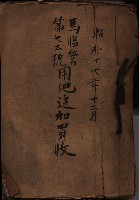 昭和十七年十二月
馬場誓
第七三號用地追加買收